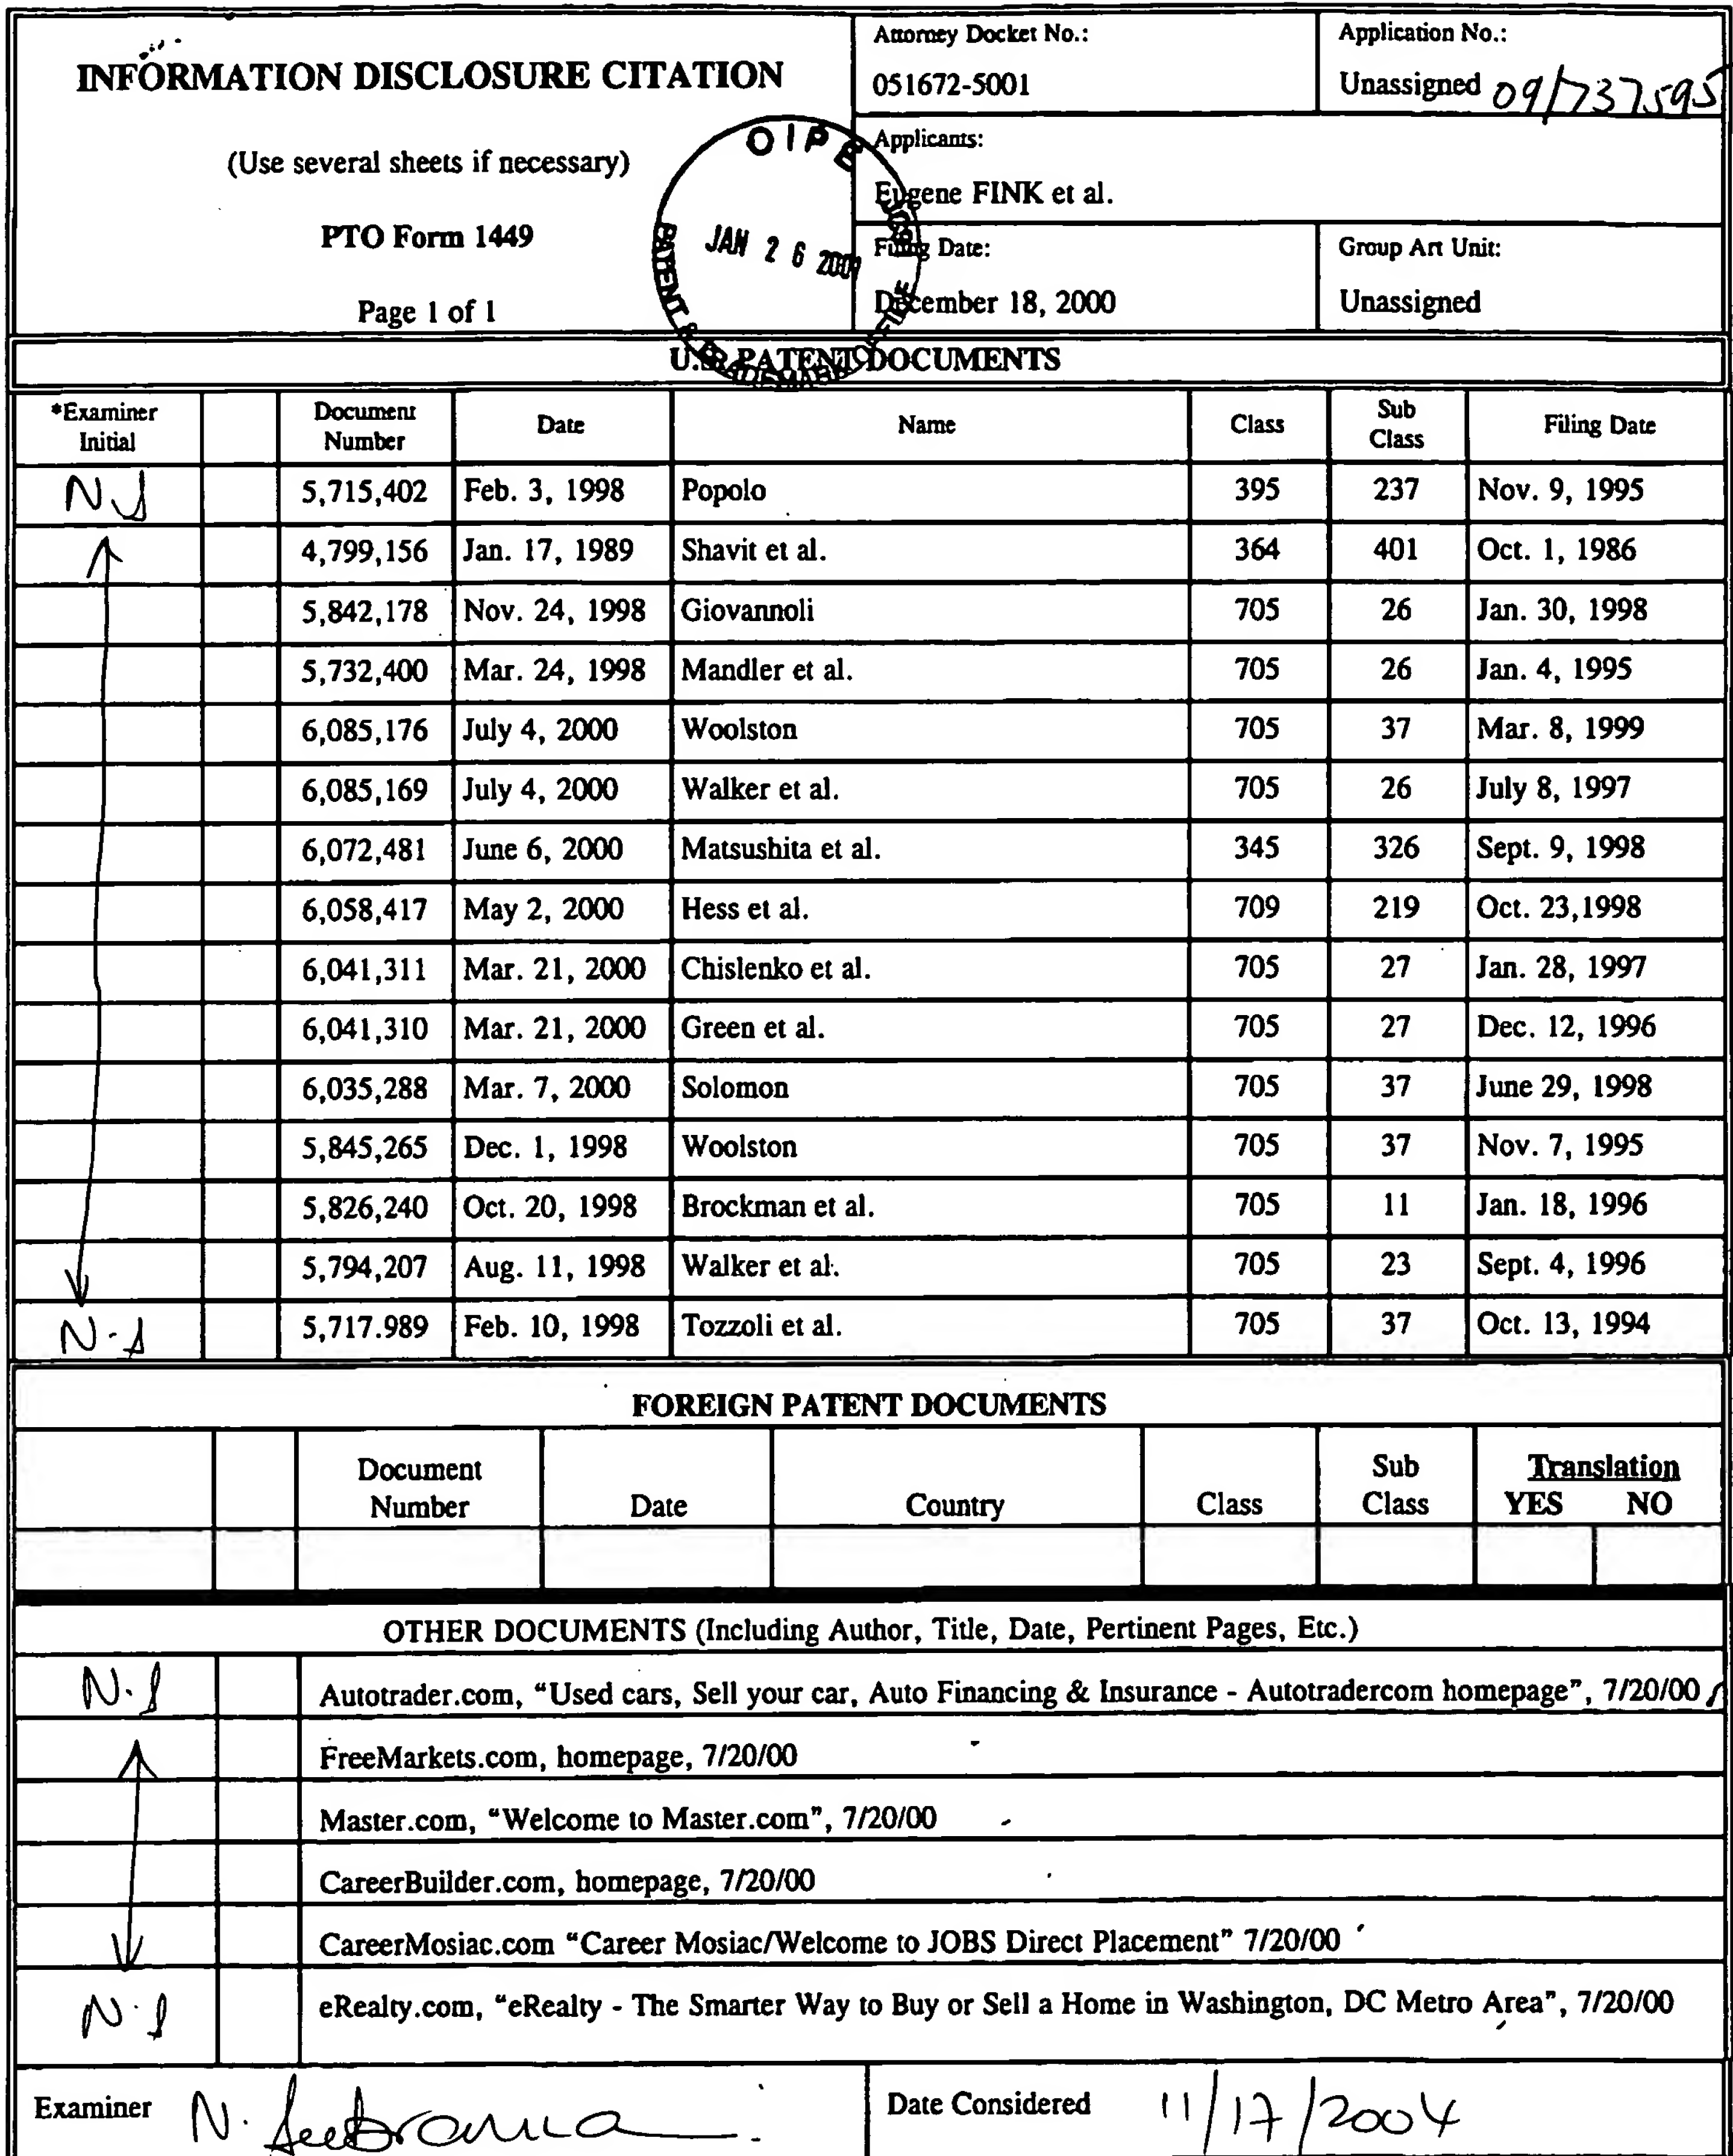 INFORMATION DISCLOSURE CITATION
(Use several sheets if necessary)
PTO Form 1449
Page 1 of 1
Attorney Docket No.:
051672-5001
Application No.:
Unassigned 09/737595
Applicants:
Eugene FINK et al.
Filing Date:
December 18, 2000
Group Art Unit:
Unassigned
OIPE
JAN 26 2001
PATENT & TRADEMARK OFFICE
U.S. PATENT DOCUMENTS
*Examiner Initial Document Number Date Name Class Sub Class Filing Date
NS 5,715,402 Feb. 3, 1998 Popolo 395 237 Nov. 9, 1995
4,799,156 Jan. 17, 1989 Shavit et al. 364 401 Oct. 1, 1986
5,842,178 Nov. 24, 1998 Giovannoli 705 26 Jan. 30, 1998
5,732,400 Mar. 24, 1998 Mandler et al. 705 26 Jan. 4, 1995
6,085,176 July 4, 2000 Woolston 705 37 Mar. 8, 1999
6,085,169 July 4, 2000 Walker et al. 705 26 July 8, 1997
6,072,481 June 6, 2000 Matsushita et al. 345 326 Sept. 9, 1998
6,058,417 May 2, 2000 Hess et al. 709 219 Oct. 23,1998
6,041,311 Mar. 21, 2000 Chislenko et al. 705 27 Jan. 28, 1997
6,041,310 Mar. 21, 2000 Green et al. 705 27 Dec. 12, 1996
6,035,288 Mar. 7, 2000 Solomon 705 37 June 29, 1998
5,845,265 Dec. 1, 1998 Woolston 705 37 Nov. 7, 1995
5,826,240 Oct. 20, 1998 Brockman et al. 705 11 Jan. 18, 1996
5,794,207 Aug. 11, 1998 Walker et al. 705 23 Sept. 4, 1996
N.S 5,717.989 Feb. 10, 1998 Tozzoli et al. 705 37 Oct. 13, 1994
FOREIGN PATENT DOCUMENTS
Document Number Date Country Class Sub Class Translation YES NO
OTHER DOCUMENTS (Including Author, Title, Date, Pertinent Pages, Etc.)
N.S Autotrader.com, “Used cars, Sell your car, Auto Financing & Insurance - Autotradercom homepage”, 7/20/00
FreeMarkets.com, homepage, 7/20/00
Master.com, “Welcome to Master.com”, 7/20/00
CareerBuilder.com, homepage, 7/20/00
CareerMosiac.com “Career Mosiac/Welcome to JOBS Direct Placement” 7/20/00
N.S eRealty.com, “eRealty - The Smarter Way to Buy or Sell a Home in Washington, DC Metro Area”, 7/20/00
Examiner N.
Date Considered 11/17/2004